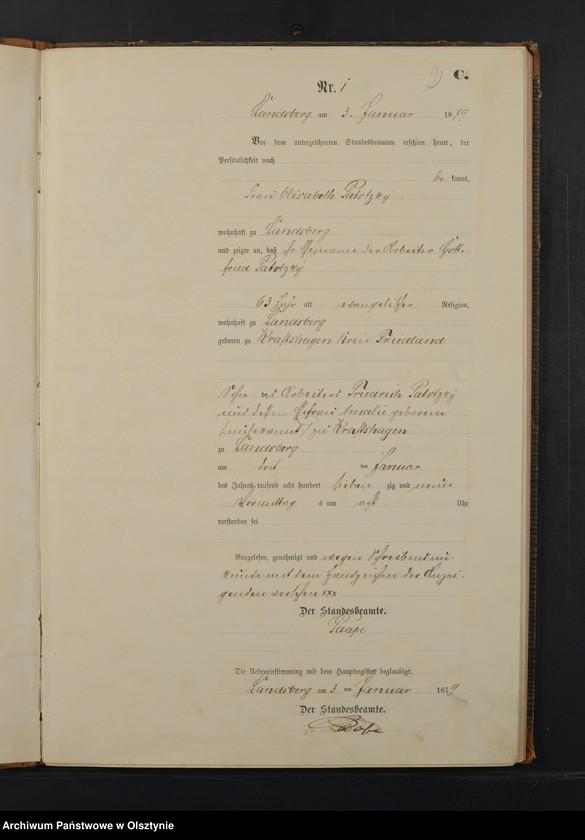 2) C.
Nr. 1
Landsberg am 3. Januar 1879
Vor dem unterzeichneten Standesbeamten erschien heute, der
Persönlichkeit nach
be kannt,
Frau Elisabeth Patotzky
wohnhaft zu Landsberg
und zeigte an, daß ihr Ehemann der Arbeiter Gott-
fried Patotzky
63 Jahr alt evangelischer Religion,
wohnhaft zu Landsberg
geboren zu Kraftshagen Kreis Friedland
Sohn des Arbeiters Friedrich Patotzky
und dessen Ehefrau Amalie geborene
(unbekannt) zu Kraftshagen
zu Landsberg
am drit ten Januar
des Jahres tausend acht hundert sieben zig und neun
Vormittag s um acht Uhr
verstorben sei
Vorgelesen, genehmigt und wegen Schreibensun-
kunde mit dem Handzeichen der Anzei-
genden versehen xxx
Der Standesbeamte.
Die Uebereinstimmung mit dem Hauptregister beglaubigt.
Landsberg am 3 ten Januar 1879
Der Standesbeamte.
Archiwum Państwowe w Olsztynie